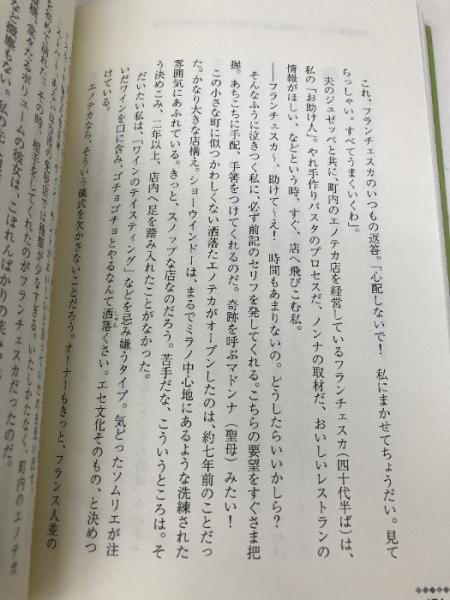 これ、フランチェスカのいつもの返答。「心配しないで！　私にまかせてちょうだい。見て
らっしゃい。すべてうまくいくわ」。
夫のジュゼッペと共に、町内のエノテカ店を経営しているフランチェスカ（四十代半ば）は、
私の「お助け人」。やれ手作りパスタのプロセスだ、ノンナの取材だ、おいしいレストランの
情報がほしい、などという時、すぐ、店へ飛びこむ私。
――フランチェスカ～、助けて～え！　時間もあまりないの。どうしたらいいかしら？
そんなふうに泣きつく私に、必ず前記のセリフを発してくれる。こちらの要望をすぐさま把
握。あちこちに手配、手筈をつけてくれるのだ。奇跡を呼ぶマドンナ（聖母）みたい！
この小さな町に似つかわしくない洒落たエノテカがオープンしたのは、約七年前のことだっ
た。かなり大きな店構え。ショーウインドーは、まるでミラノ中心地にあるような洗練された
雰囲気にあふれている。きっと、スノッブな店なのだろう。苦手だな、こういうところは。そ
う決めこみ、二年以上、店内へ足を踏み入れたことがなかった。
だいたい私は、「ワインのテイスティング」などを忌み嫌うタイプ。気どったソムリエが注
いだワインを口に含み、ゴチョゴチョとやるなんて洒落くさい。エセ文化そのもの、と決めつ
けている。
エノテカなら、そういう儀式を欠かさないことだろう。オーナーもきっと、フランス人並の
種類が少なすぎる。いたしかたなく、町内のエノテカ
を訪れた。その時、相手をしてくれたのがフランチェスカだったのだ。
堂々たるボリュームの彼女は、こぼれんばかりの笑みで
など微塵もない。私の